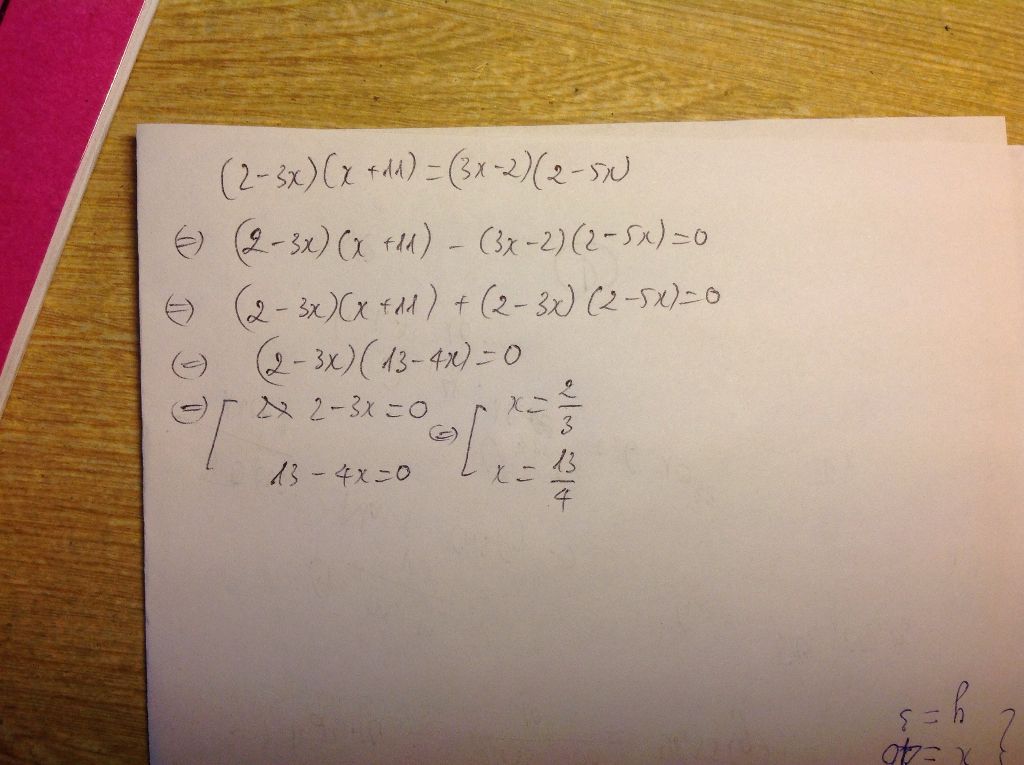 (2-3x)(x+11)=(3x-2)(2-5x)
⇔ (2-3x)(x+11) - (3x-2)(2-5x)=0
⇔ (2-3x)(x+11) + (2-3x)(2-5x)=0
⇔ (2-3x)(13-4x)=0
⇔ [ 2-3x=0 ⇔ [ x=2/3
13-4x=0 x=13/4
x=40
y=3